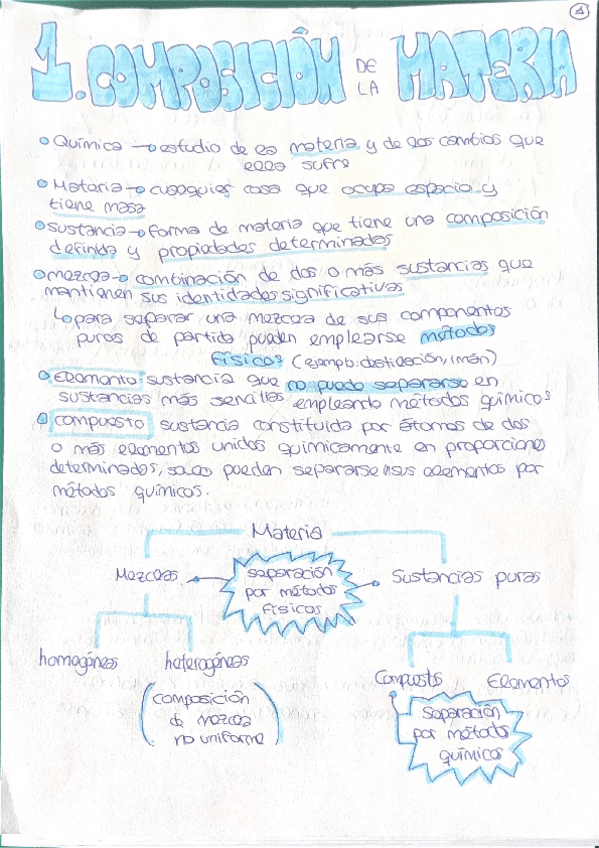 1
1. COMPOSICIÓN DE LA MATERIA
Química → estudio de la materia y de los cambios que
ella sufre
Materia → cualquier cosa que ocupa espacio y
tiene masa
sustancia → forma de materia que tiene una composición
definida y propiedades determinadas
mezcla → combinación de dos o más sustancias que
mantienen sus identidades significativas
↳ para separar una mezcla de sus componentes
puros de partida pueden emplearse métodos
físicos (ejemplo: destilación, imán)
Elemento: sustancia que no puede separarse en
sustancias más sencillas empleando métodos químicos
compuesto sustancia constituida por átomos de dos
o más elementos unidos químicamente en proporciones
determinadas, solos pueden separarse sus elementos por
métodos químicos.
Materia
Mezclas
separación
por métodos
físicos
Sustancias puras
homogéneas
heterogéneas
Compuestos
Elementos
(composición
de mezcla
no uniforme)
separación
por métodos
químicos